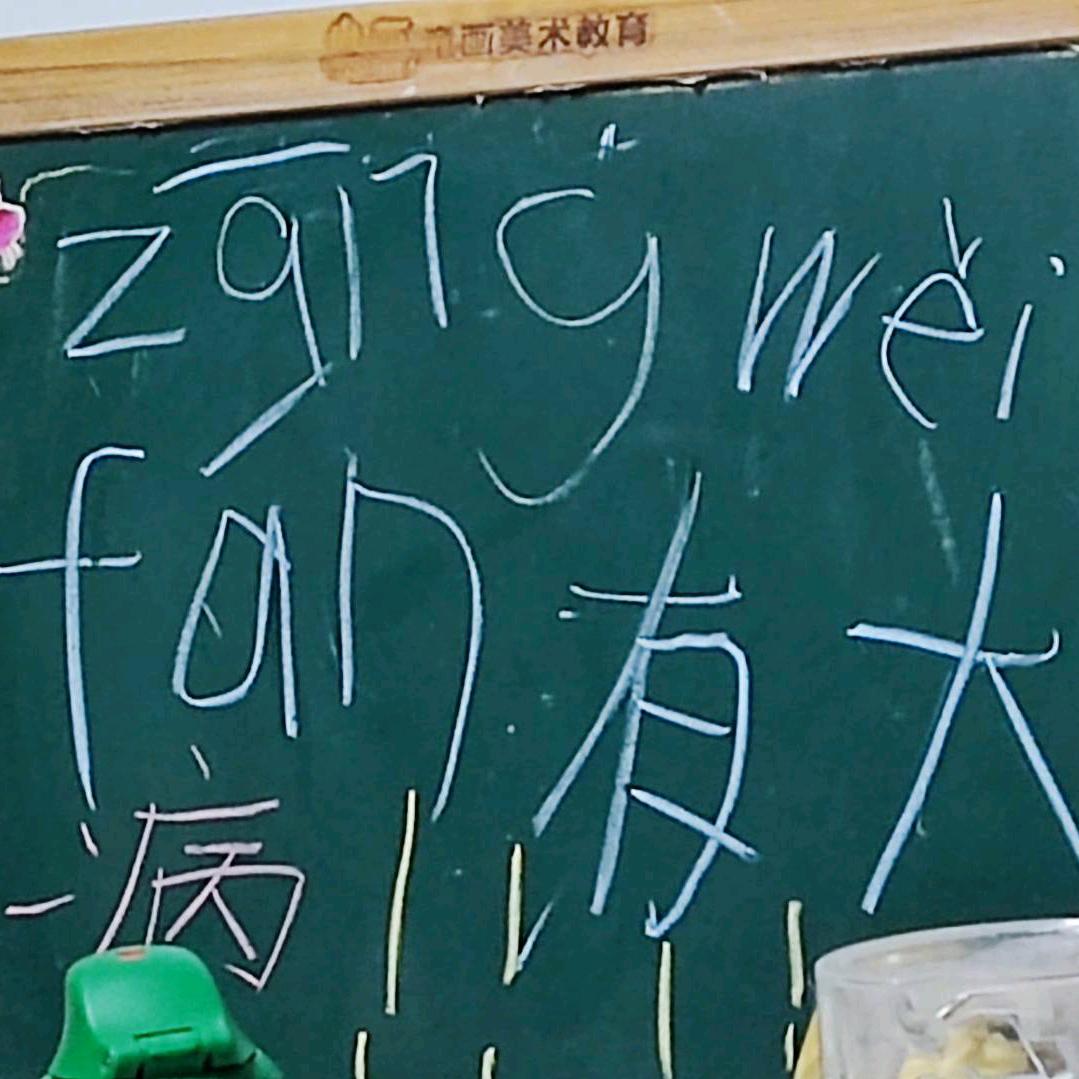 画美术教育
zgīng wěi
fan 有大
病